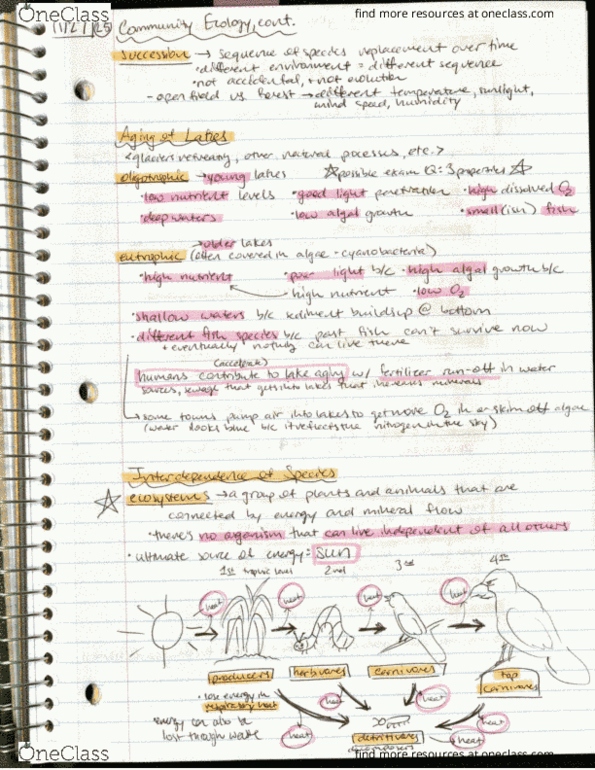 OneClass
find more resources at oneclass.com
Community Ecology, cont.
succession → sequence of species replacement over time
• different environment = different sequence
• not accidental, + not evolution
- open field vs. forest → different temperature, sunlight,
wind speed, humidity
Aging of Lakes
<glaciers retreating, other natural processes, etc.>
oligotrophic → young lakes ☆possible exam Q: 3 properties☆
• low nutrient levels • good light penetration • high dissolved O₂
• deep waters • low algal growth • small(ish) fish
→ older lakes
eutrophic (often covered in algae • cyanobacteria)
• high nutrient • poor light b/c • high algal growth b/c
high nutrient • low O₂
• shallow waters b/c sediment builds up @ bottom
• different fish species b/c past fish can't survive now
+ eventually nothing can live there
(accelerate)
humans contribute to lake aging w/ fertilizer run-off in water
sources, sewage that gets into lakes that increases minerals
→ some towns pump air into lakes to get more O₂ in or skim off algae
(water looks blue b/c it reflects the nitrogen in the sky)
Interdependence of Species
☆ ecosystems → a group of plants and animals that are
connected by energy and mineral flow
• there's no organism that can live independent of all others
• ultimate source of energy: sun
1st trophic level 2nd 3rd 4th
heat heat heat heat
producers herbivores carnivores top carnivores
• lose energy in
respiratory heat
heat heat heat
energy can also be
lost though waste
heat detritivores heat
decomposers
OneClass
find more resources at oneclass.com